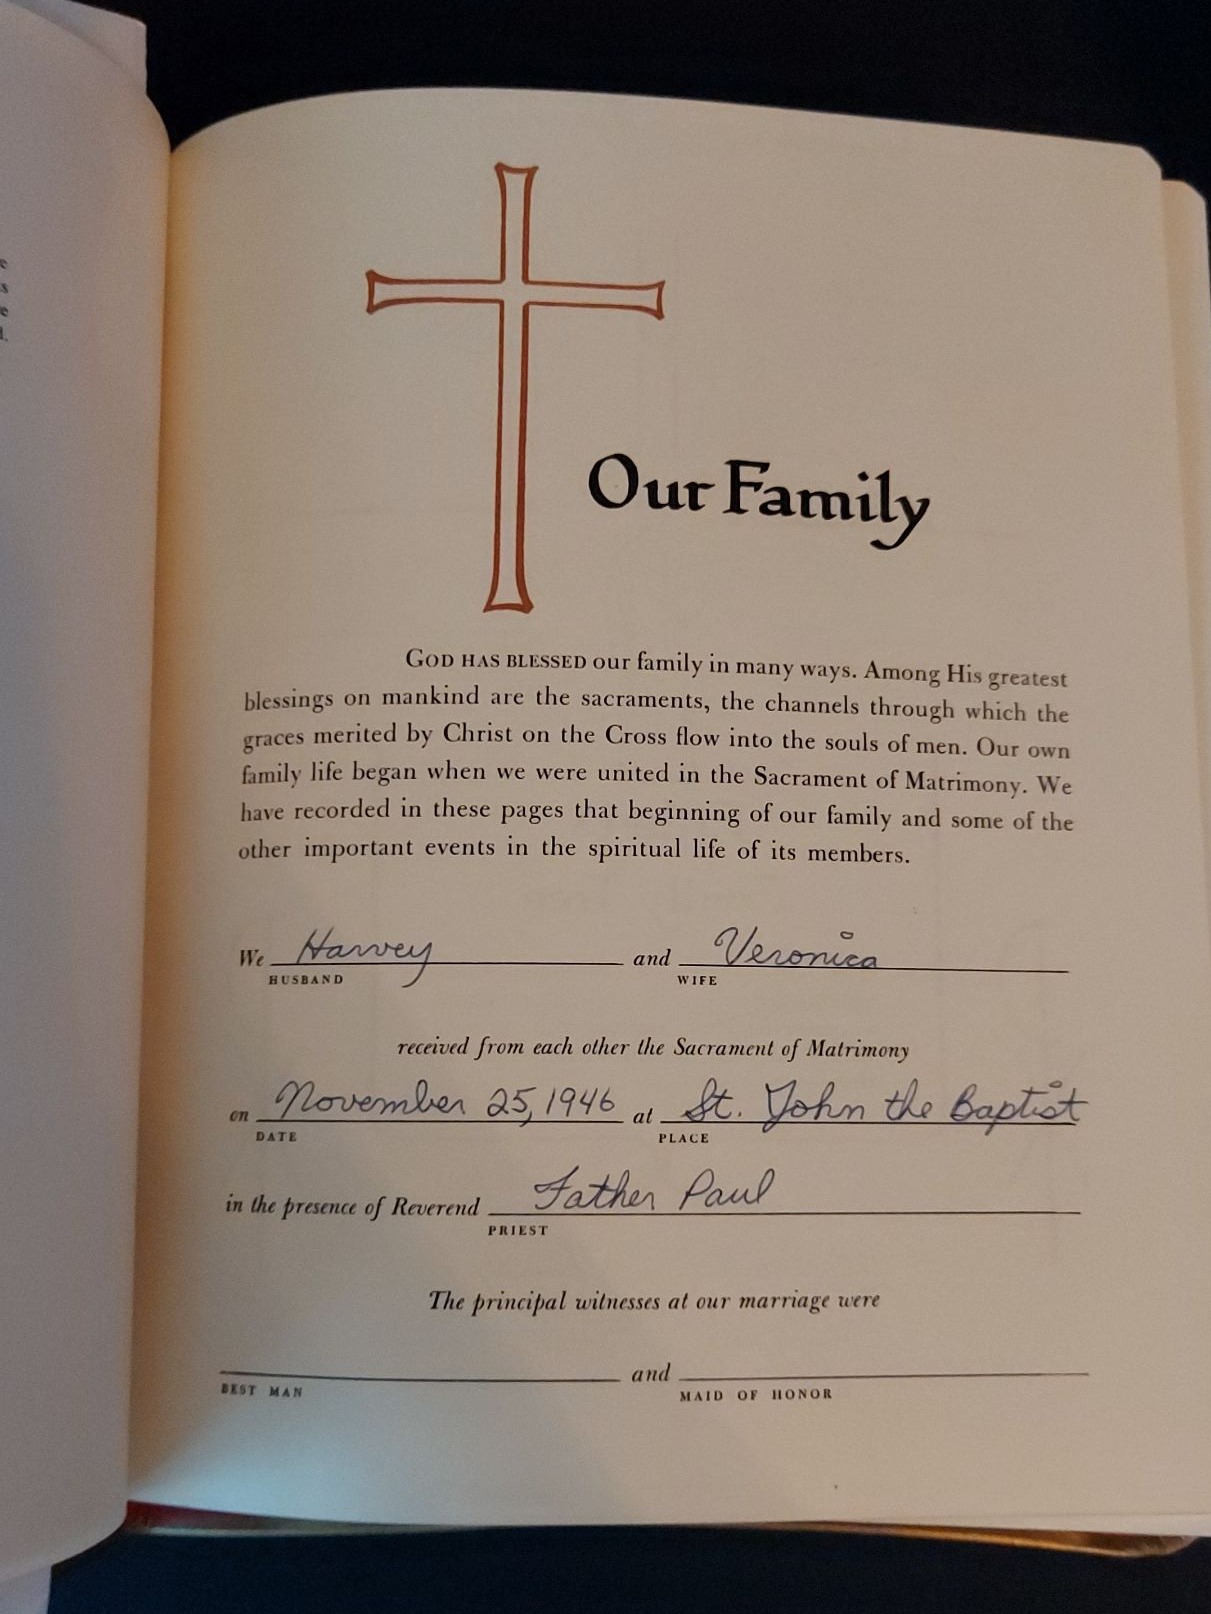 e
s
e
d.
Our Family
GOD HAS BLESSED our family in many ways. Among His greatest
blessings on mankind are the sacraments, the channels through which the
graces merited by Christ on the Cross flow into the souls of men. Our own
family life began when we were united in the Sacrament of Matrimony. We
have recorded in these pages that beginning of our family and some of the
other important events in the spiritual life of its members.
We Harvey and Veronica
HUSBAND WIFE
received from each other the Sacrament of Matrimony
on November 25, 1946 at St. John the Baptist
DATE PLACE
in the presence of Reverend Father Paul
PRIEST
The principal witnesses at our marriage were
and
BEST MAN MAID OF HONOR